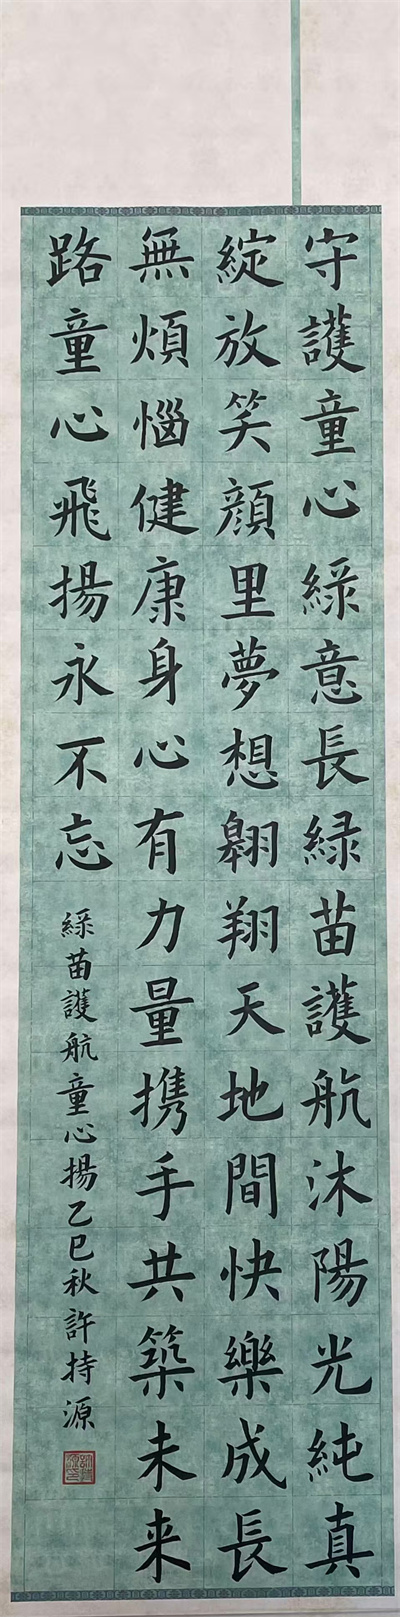 守護童心綠意長緑苗護航沐陽光純真
綻放笑顔里夢想翱翔天地間快樂成長
無煩惱健康身心有力量携手共築未来
路童心飛揚永不忘
綠苗護航童心揚乙巳秋許持源